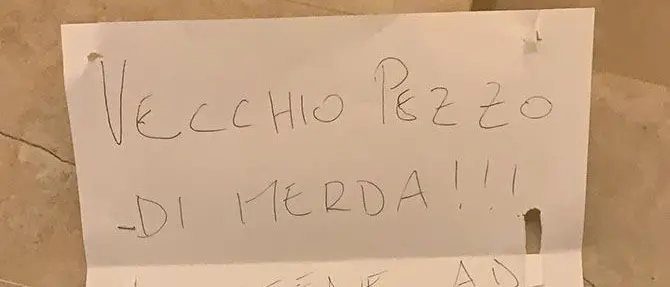 VECCHIO PEZZO
DI MERDA!!!
AD